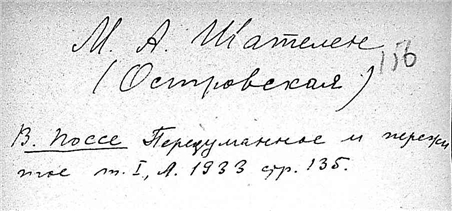 М. А. Шателен
156
(Островская)
В. Поссе Передуманное и пережи
тое т. I, Л. 1933 стр. 135.